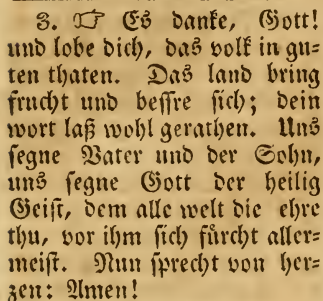 3. ☞ Es danke, Gott!
und lobe dich, das volk in gu-
ten thaten. Das land bring
frucht und bessre sich; dein
wort laß wohl gerathen. Uns
segne Vater und der Sohn,
uns segne Gott der heilig
Geist, dem alle welt die ehre
thu, vor ihm sich fürcht aller-
meist. Nun sprecht von her-
zen: Amen!